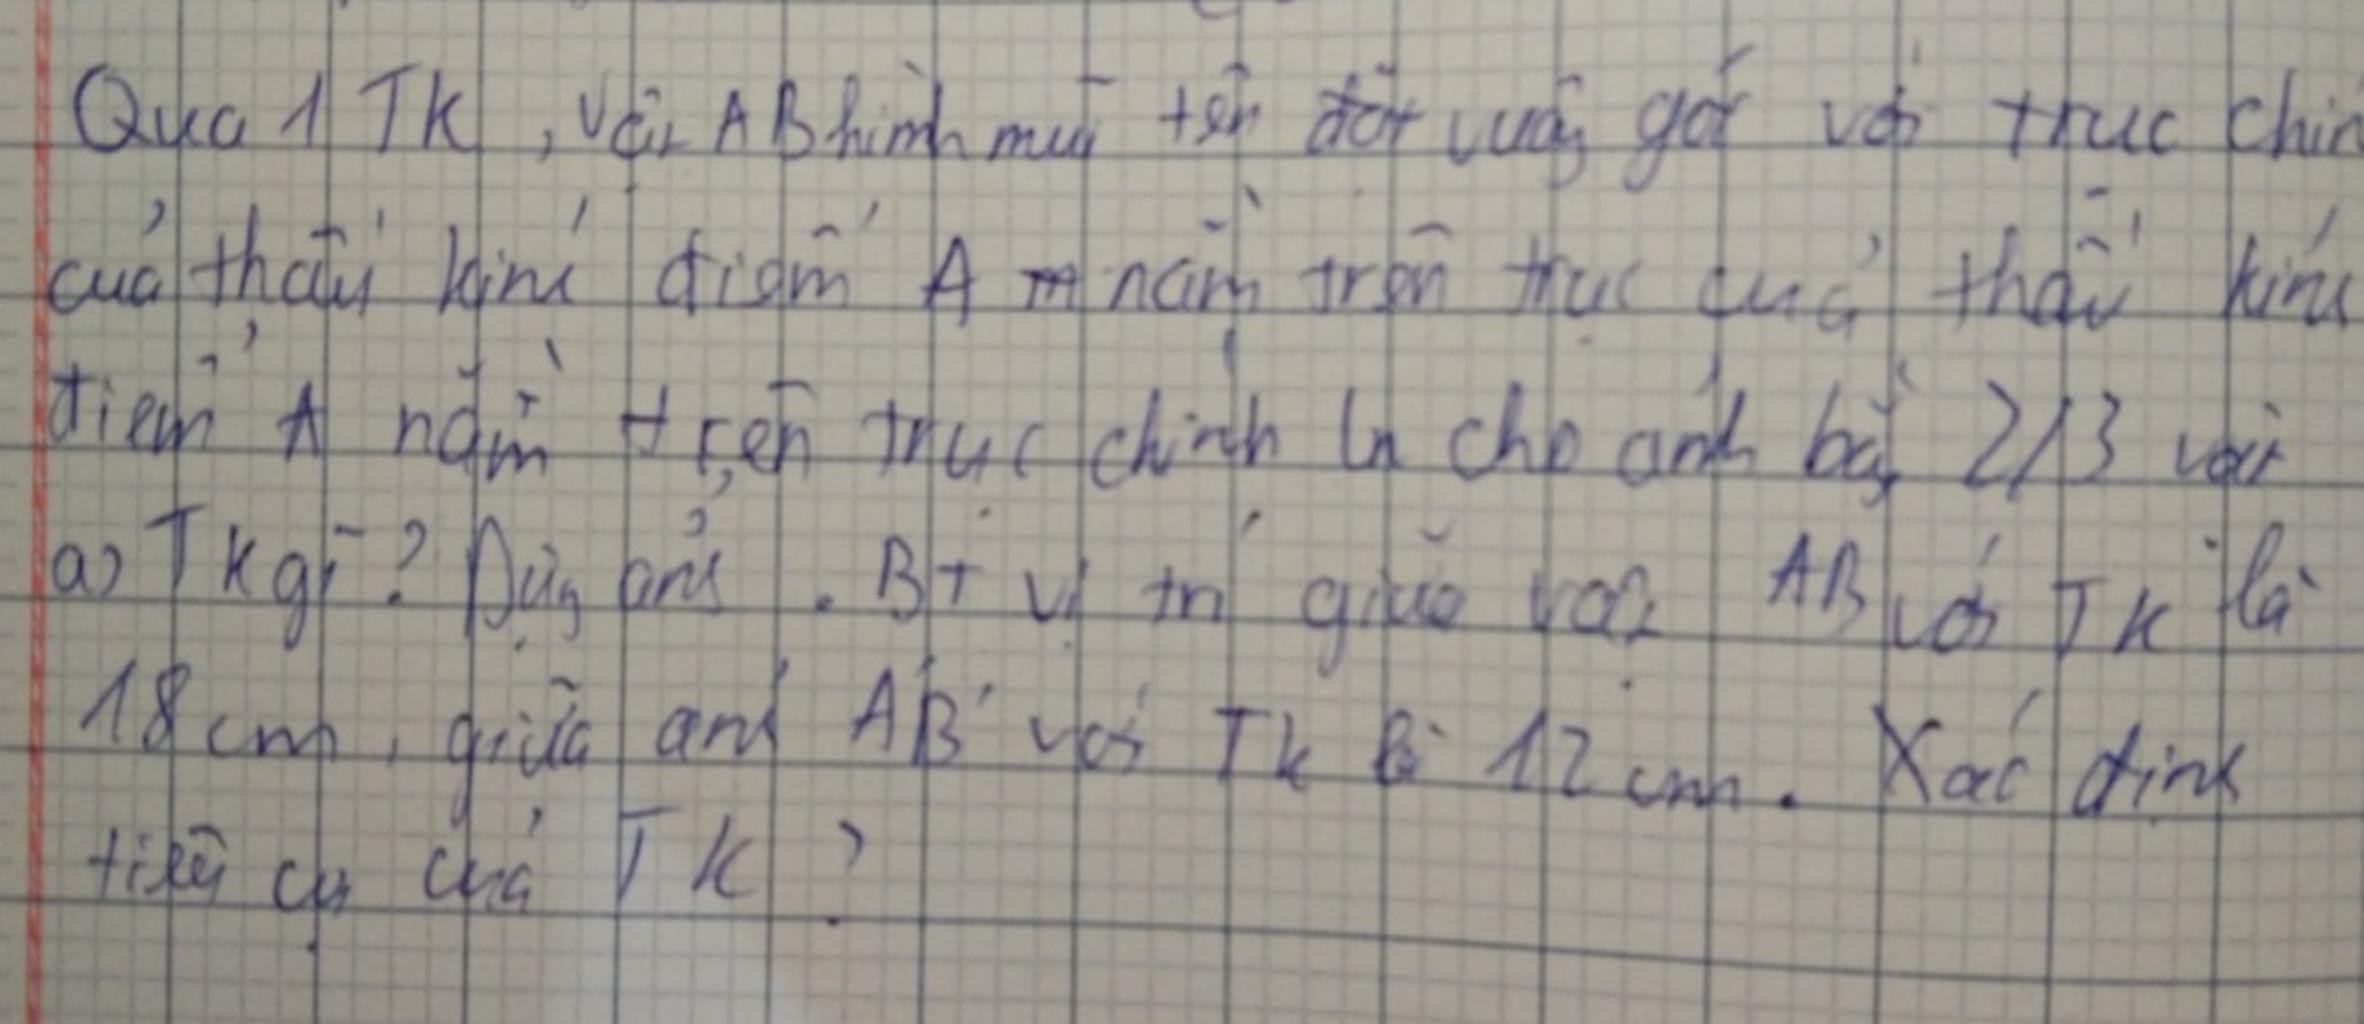 Qua 1 TK, vật AB hình mũi tên đặt vuông góc với trục chín
của thấu kính điểm A nằm trên trục của thấu kính
điểm A nằm trên trục chính cho ảnh bằng 2/3 vật
a) TK gì? Dựng ảnh. BT vị trí giữa vật AB với TK là
18 cm, giữa ảnh A'B' với TK là 12 cm. Xác định
tiêu cự của TK?